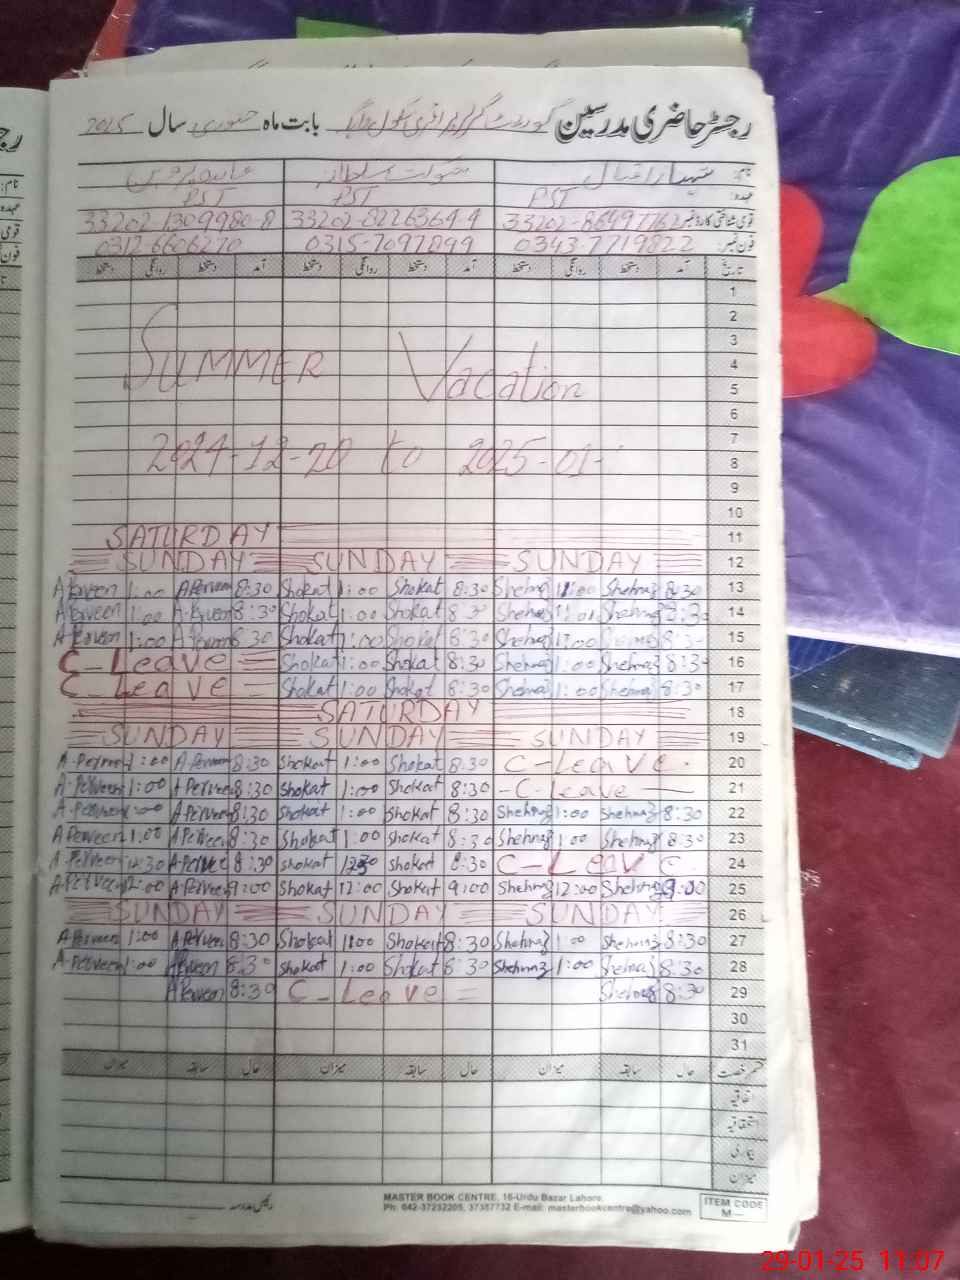 رجسٹر حاضری مدرسین گورنمنٹ گرلز پرائمری سکول بابت ماہ جنوری سال 2025
نام: شہناز اقبال شوکت سلطانہ عابدہ پروین
عہدہ: PST PST PST
قومی شناختی کارڈ نمبر 33202-86497762 33202-8226364-4 33202-1309980-8
فون نمبر: 0343-7719822 0315-7097899 0312-6606270
تاریخ آمد دستخط روانگی دستخط آمد دستخط روانگی دستخط آمد دستخط روانگی دستخط
1
2
3
SUMMER Vacation 4
5
6
7
2024-12-20 to 2025-01- 8
9
10
SATURDAY 11
SUNDAY SUNDAY SUNDAY 12
A Perveen 1:00 A Perveen 8:30 Shokat 1:00 Shokat 8:30 Shehnaz 1:00 Shehnaz 8:30 13
A-Perveen 1:00 A-Perveen 8:30 Shokat 1:00 Shokat 8:30 Shehnaz 1:00 Shehnaz 8:30 14
A-Perveen 1:00 A Perveen 8:30 Shokat 1:00 Shokat 8:30 Shehnaz 1:00 Shehnaz 8:30 15
C-Leave Shokat 1:00 Shokat 8:30 Shehnaz 1:00 Shehnaz 8:30 16
C-Leave Shokat 1:00 Shokat 8:30 Shehnaz 1:00 Shehnaz 8:30 17
SATURDAY 18
SUNDAY SUNDAY SUNDAY 19
A-Perveen 1:00 A Perveen 8:30 Shokat 1:00 Shokat 8:30 C-Leave 20
A-Perveen 1:00 A-Perveen 8:30 Shokat 1:00 Shokat 8:30 -C-Leave 21
A-Perveen 1:00 A Perveen 8:30 Shokat 1:00 Shokat 8:30 Shehnaz 1:00 Shehnaz 8:30 22
A Perveen 1:00 A Perveen 8:30 Shokat 1:00 Shokat 8:30 Shehnaz 1:00 Shehnaz 8:30 23
A-Perveen 12:30 A-Perveen 8:30 Shokat 12:30 Shokat 8:30 C-Leave 24
A-Perveen 12:00 A-Perveen 9:00 Shokat 12:00 Shokat 9:00 Shehnaz 12:00 Shehnaz 9:00 25
SUNDAY SUNDAY SUNDAY 26
A Perveen 1:00 A Perveen 8:30 Shokat 1:00 Shokat 8:30 Shehnaz 1:00 Shehnaz 8:30 27
A-Perveen 1:00 A Perveen 8:30 Shokat 1:00 Shokat 8:30 Shehnaz 1:00 Shehnaz 8:30 28
A Perveen 8:30 C-Leave Shehnaz 8:30 29
30
31
قسم رخصت حال سابقہ میزان حال سابقہ میزان حال سابقہ میزان
اتفاقیہ
استحقاقیہ
بیماری
میزان
رئیس مدرسہ
MASTER BOOK CENTRE, 16-Urdu Bazar Lahore.
Ph: 042-37232205, 37357732 E-mail: masterbookcentre@yahoo.com
ITEM CODE
M—
29-01-25 11:07